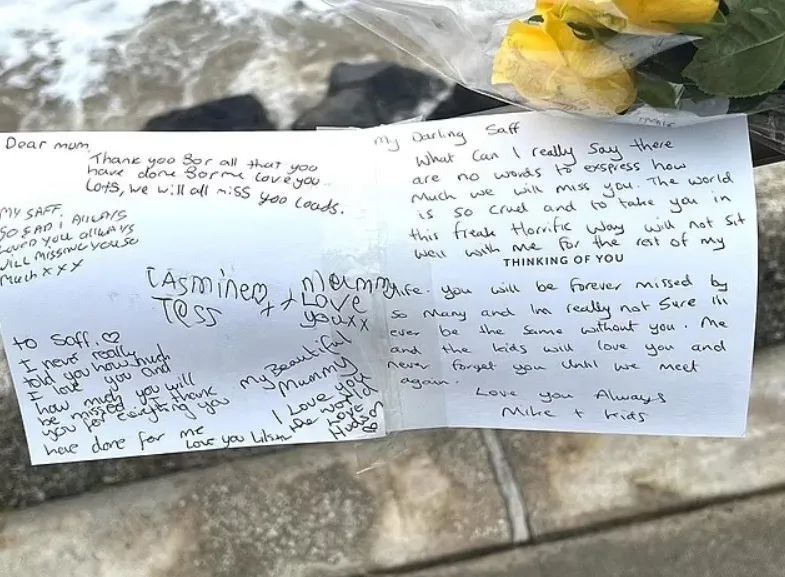 Dear mum
Thank you for all that you
have done for me love you
Lots, we will all miss you loads.
MY SAFF.
SO SAD I Always
Loved you always
will missing you so
Much xxx
Tess
Mummy
Love
you xx
to Saff. ♡
I never really
told you how much
I love you and
how much you will
be missed. I thank
you for everything you
have done for me
Love you
My Beautiful
Mummy
I Love you
the world
Love
Hudson
My Darling Saff
What Can I really Say there
are no words to exspress how
Much we will miss you. The world
is so cruel and to take you in
this freak Horrific Way will not Sit
well with me for the rest of my
THINKING OF YOU
life. you will be forever missed by
so many and Im really not Sure Ill
ever be the Same without you. Me
and the kids will love you and
never forget you Until we meet
again.
Love you Always
Mike + kids